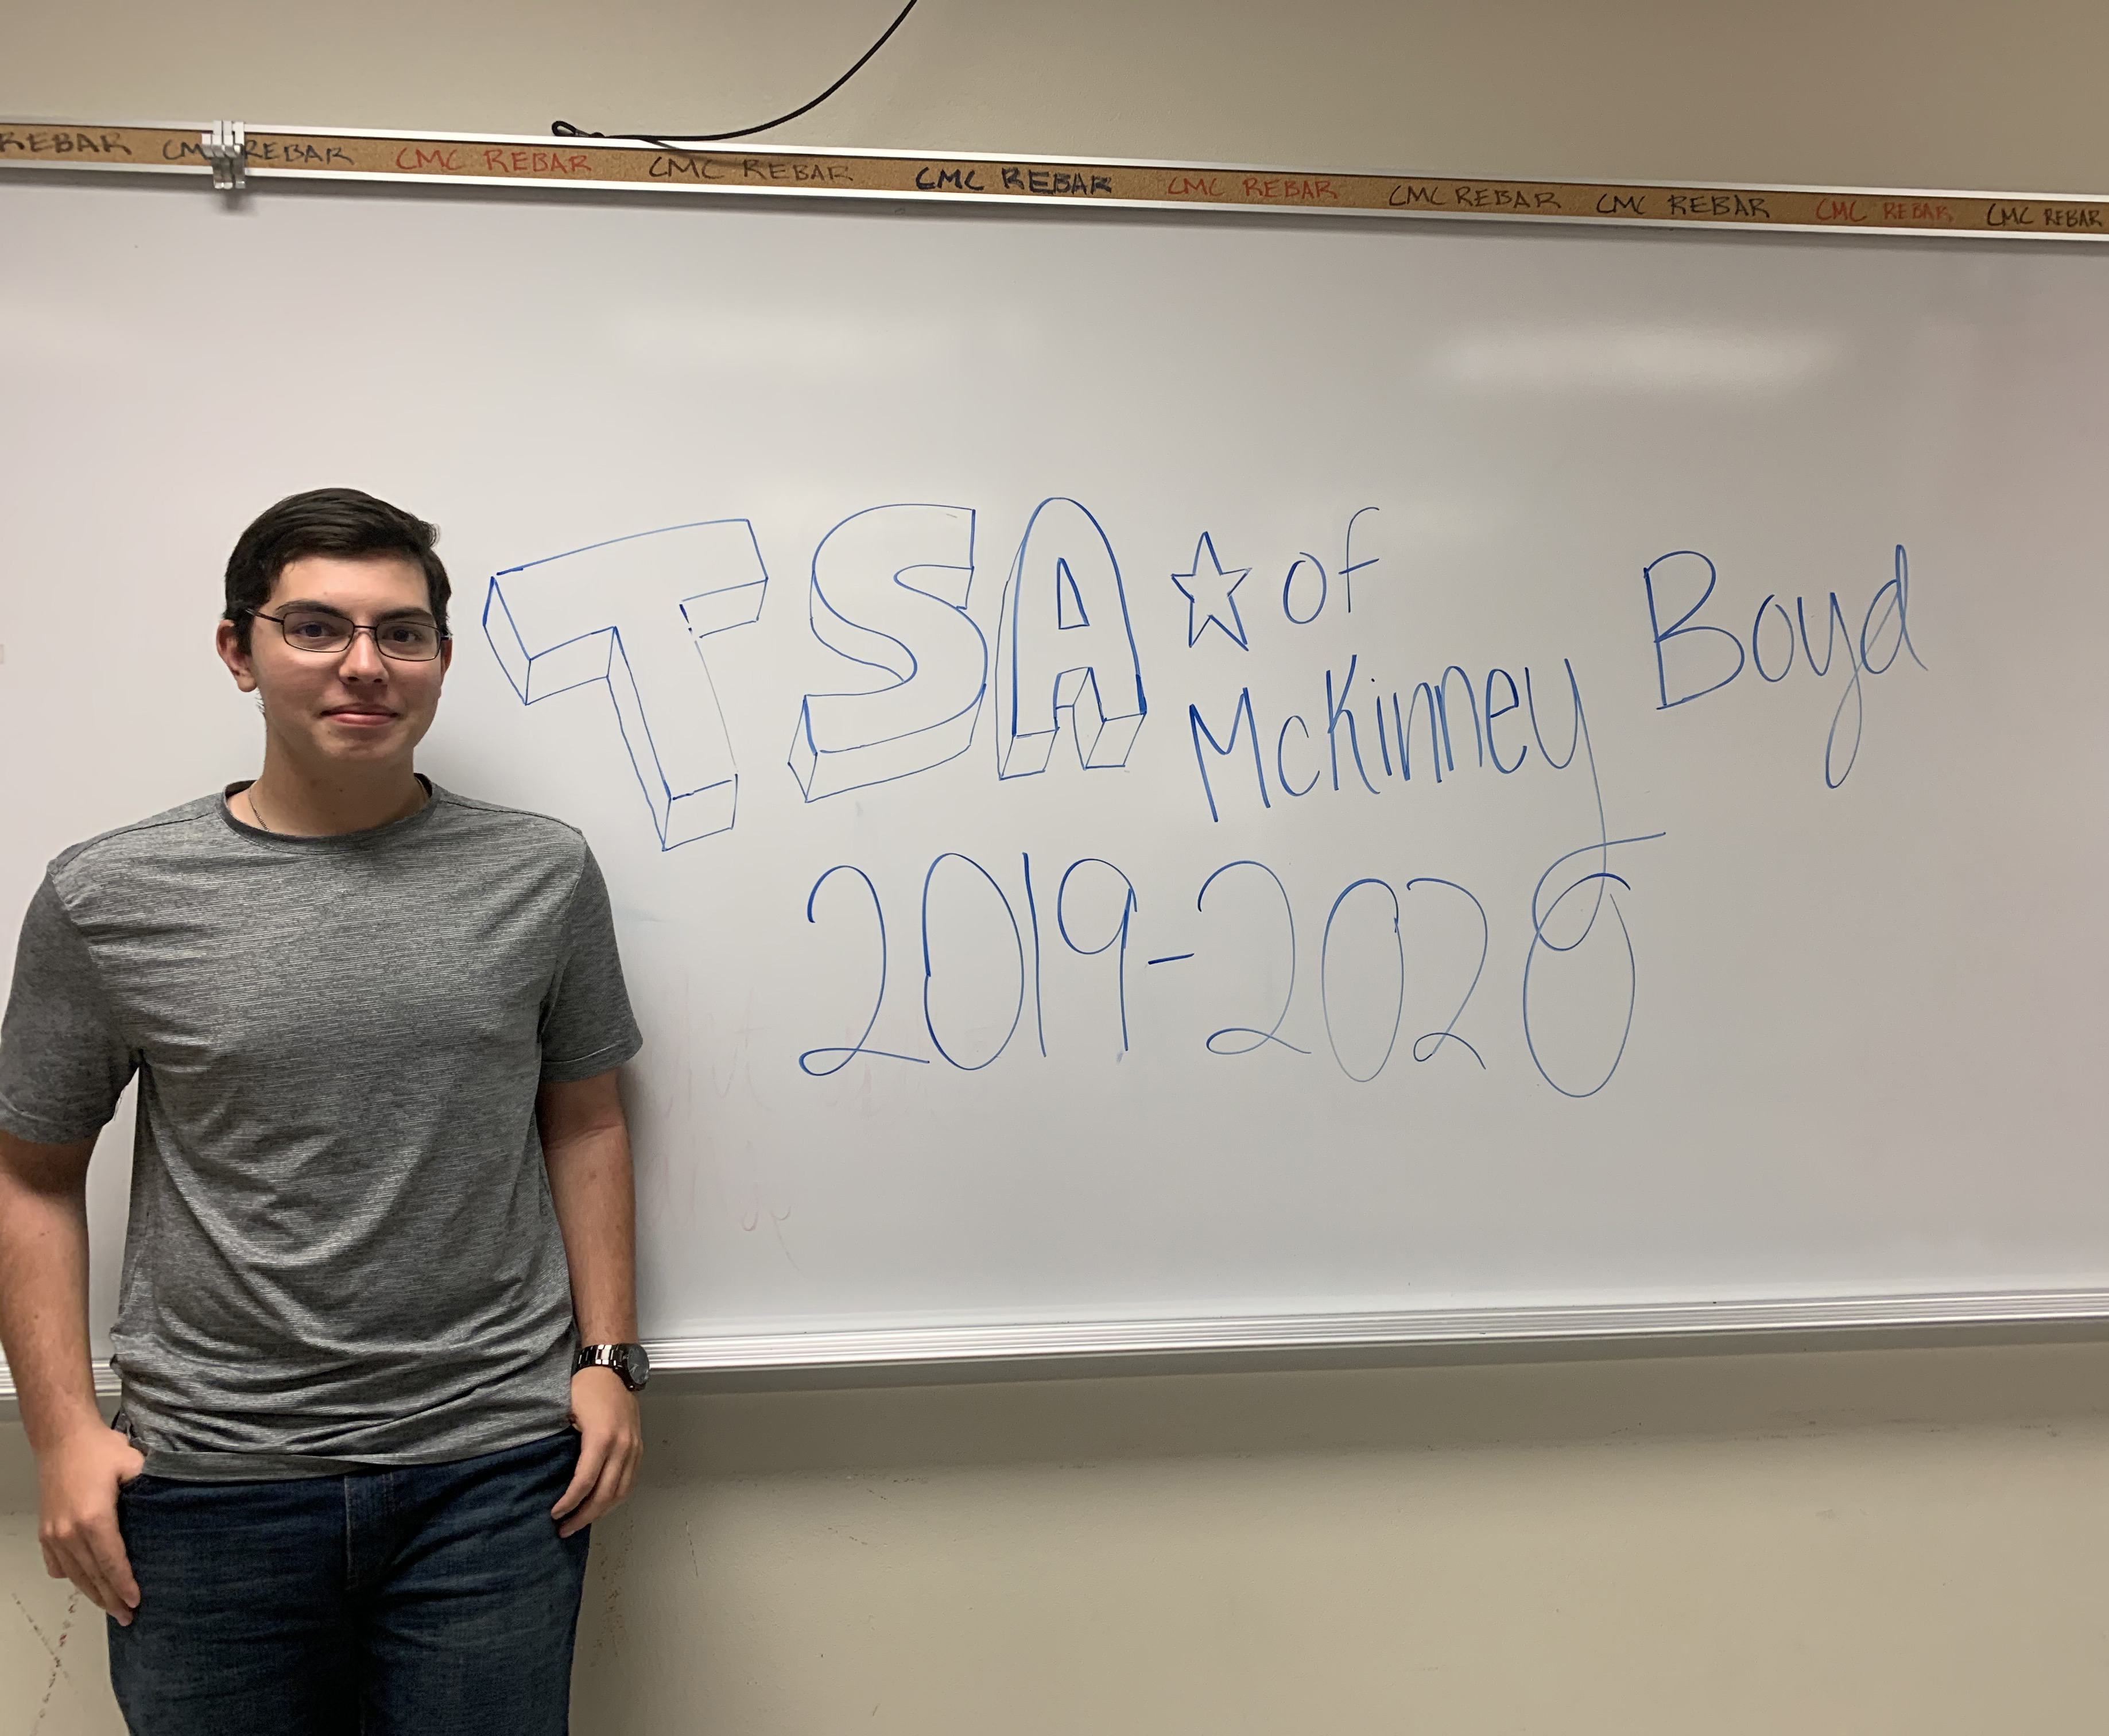 REBAR CMC REBAR CMC REBAR CMC REBAR CMC REBAR CMC REBAR CMC REBAR CMC REBAR CMC REBAR CMC REBAR
TSA of
McKinney Boyd
2019-2020